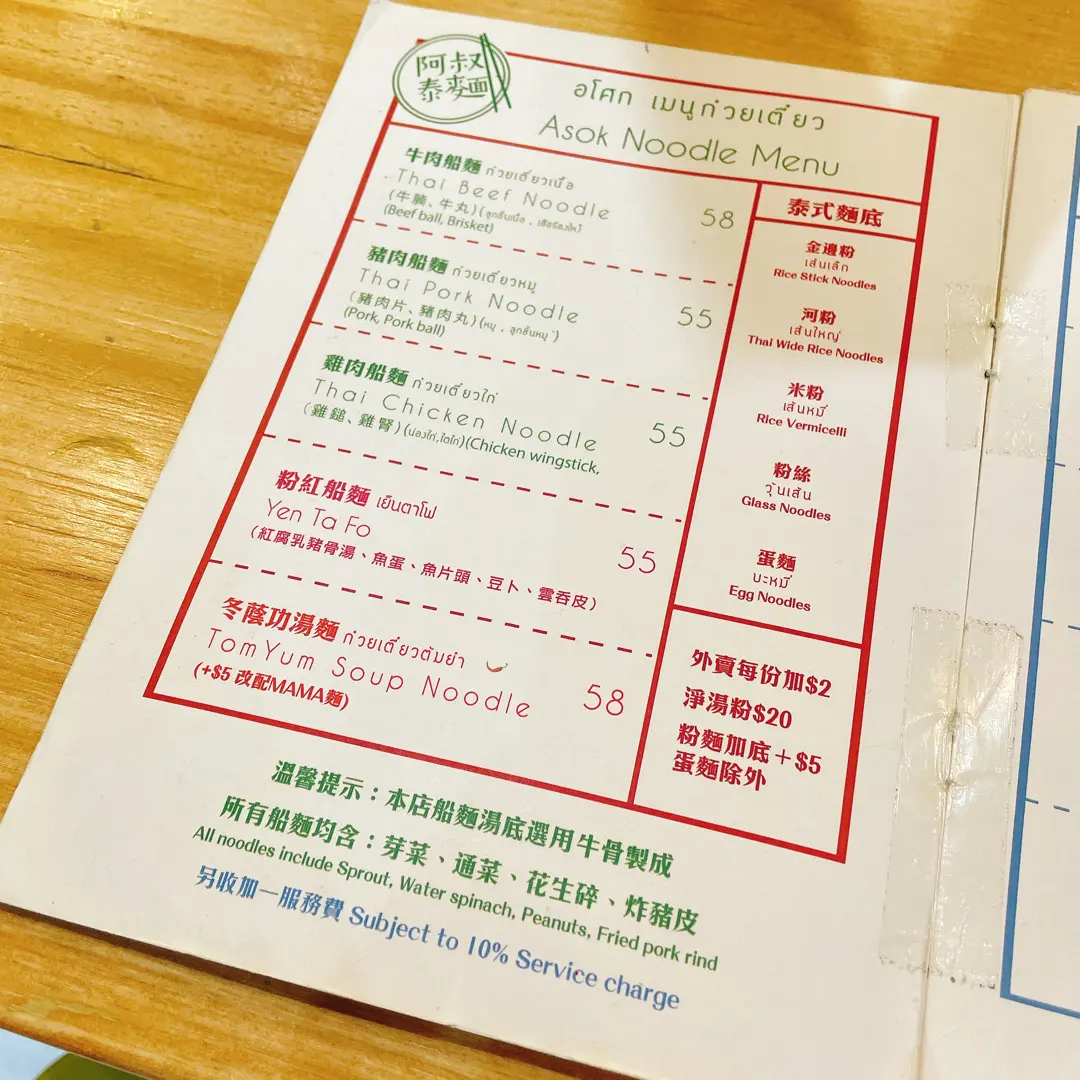 阿叔
泰麥麵
อโศก เมนูก๋วยเตี๋ยว
Asok Noodle Menu
牛肉船麵 ก๋วยเตี๋ยวเนื้อ
Thai Beef Noodle
58
(牛腩、牛丸)(ลูกชิ้นเนื้อ , เสือร้องไห้
(Beef ball, Brisket)
豬肉船麵 ก๋วยเตี๋ยวหมู
Thai Pork Noodle
55
(豬肉片、豬肉丸)(หมู , ลูกชิ้นหมู )
(Pork, Pork ball)
雞肉船麵 ก๋วยเตี๋ยวไก่
Thai Chicken Noodle
55
(雞鎚、雞腎)(น่องไก่,ไตไก่)(Chicken wingstick,
粉紅船麵 เย็นตาโฟ
Yen Ta Fo
55
(紅腐乳豬骨湯、魚蛋、魚片頭、豆卜、雲吞皮)
冬蔭功湯麵 ก๋วยเตี๋ยวต้มยำ
TomYum Soup Noodle
58
(+$5 改配MAMA麵)
泰式麵底
金邊粉
เส้นเล็ก
Rice Stick Noodles
河粉
เส้นใหญ่
Thai Wide Rice Noodles
米粉
เส้นหมี่
Rice Vermicelli
粉絲
วุ้นเส้น
Glass Noodles
蛋麵
บะหมี่
Egg Noodles
外賣每份加$2
淨湯粉$20
粉麵加底+$5
蛋麵除外
溫馨提示：本店船麵湯底選用牛骨製成
所有船麵均含：芽菜、通菜、花生碎、炸豬皮
All noodles include Sprout, Water spinach, Peanuts, Fried pork rind
另收加一服務費 Subject to 10% Service charge